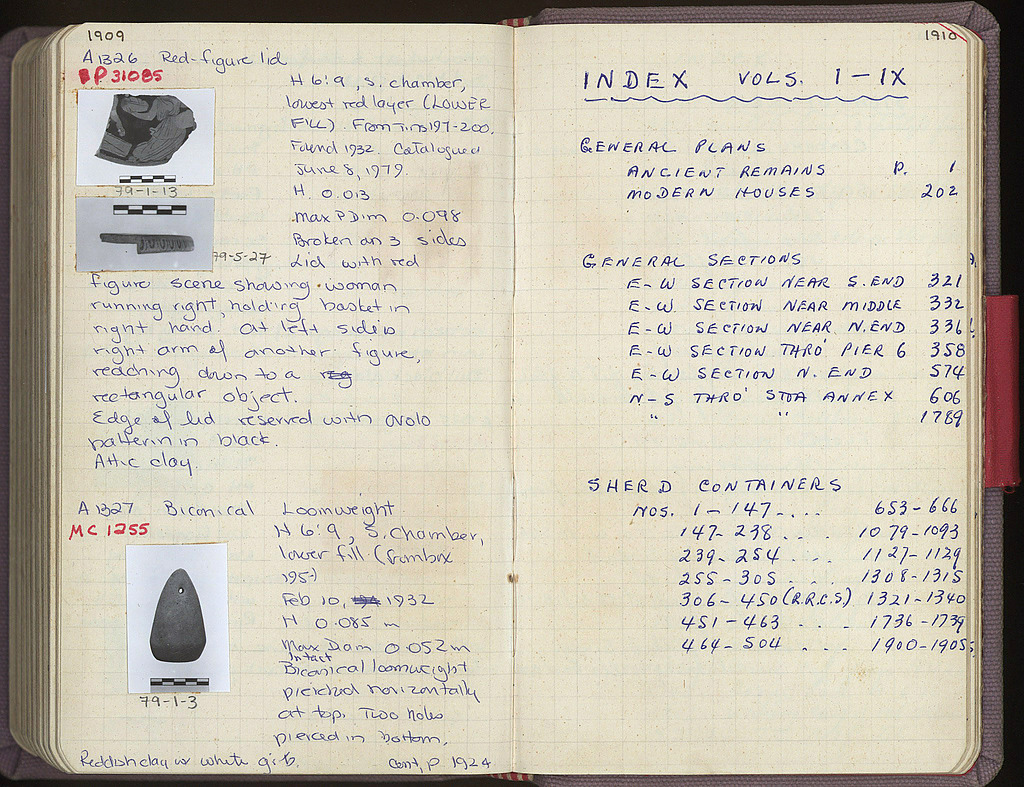 1909
A 1326 Red-figure lid
P 31085
H 6:9, S. chamber,
lowest red layer (LOWER
FILL). From Tins 197-200.
Found 1932. Catalogued
June 8, 1979.
H. 0.013
Max P Dim 0.098
Broken on 3 sides
Lid with red
79-1-13
79-5-27
figure scene showing woman
running right, holding basket in
right hand. At left side is
right arm of another figure,
reaching down to a reg
rectangular object.
Edge of lid reserved with ovolo
pattern in black.
Attic clay.
A 1327 Biconical Loomweight
MC 1255
H 6:9, S. Chamber,
lower fill (from box
195)
Feb 10, 1932
H 0.085 m
Max Diam 0.052 m
Intact
Biconical loomweight
pierced horizontally
at top. Two holes
pierced in bottom.
79-1-3
Reddish clay w white grits.
Cont, p 1924
1910
INDEX VOLS. I-IX
GENERAL PLANS
ANCIENT REMAINS P. 1
MODERN HOUSES 202
GENERAL SECTIONS
E-W SECTION NEAR S. END 321
E-W SECTION NEAR MIDDLE 332
E-W SECTION NEAR N. END 336
E-W SECTION THRO' PIER 6 358
E-W SECTION N. END 574
N-S THRO' STOA ANNEX 606
" " 1789
SHERD CONTAINERS
NOS. 1-147 .... 653-666
147-238 ... 1079-1093
239-254 ... 1127-1129
255-305 ... 1308-1315
306-450 (R.R.C.S.) 1321-1340
451-463 .... 1736-1739
464-504 ... 1900-1905